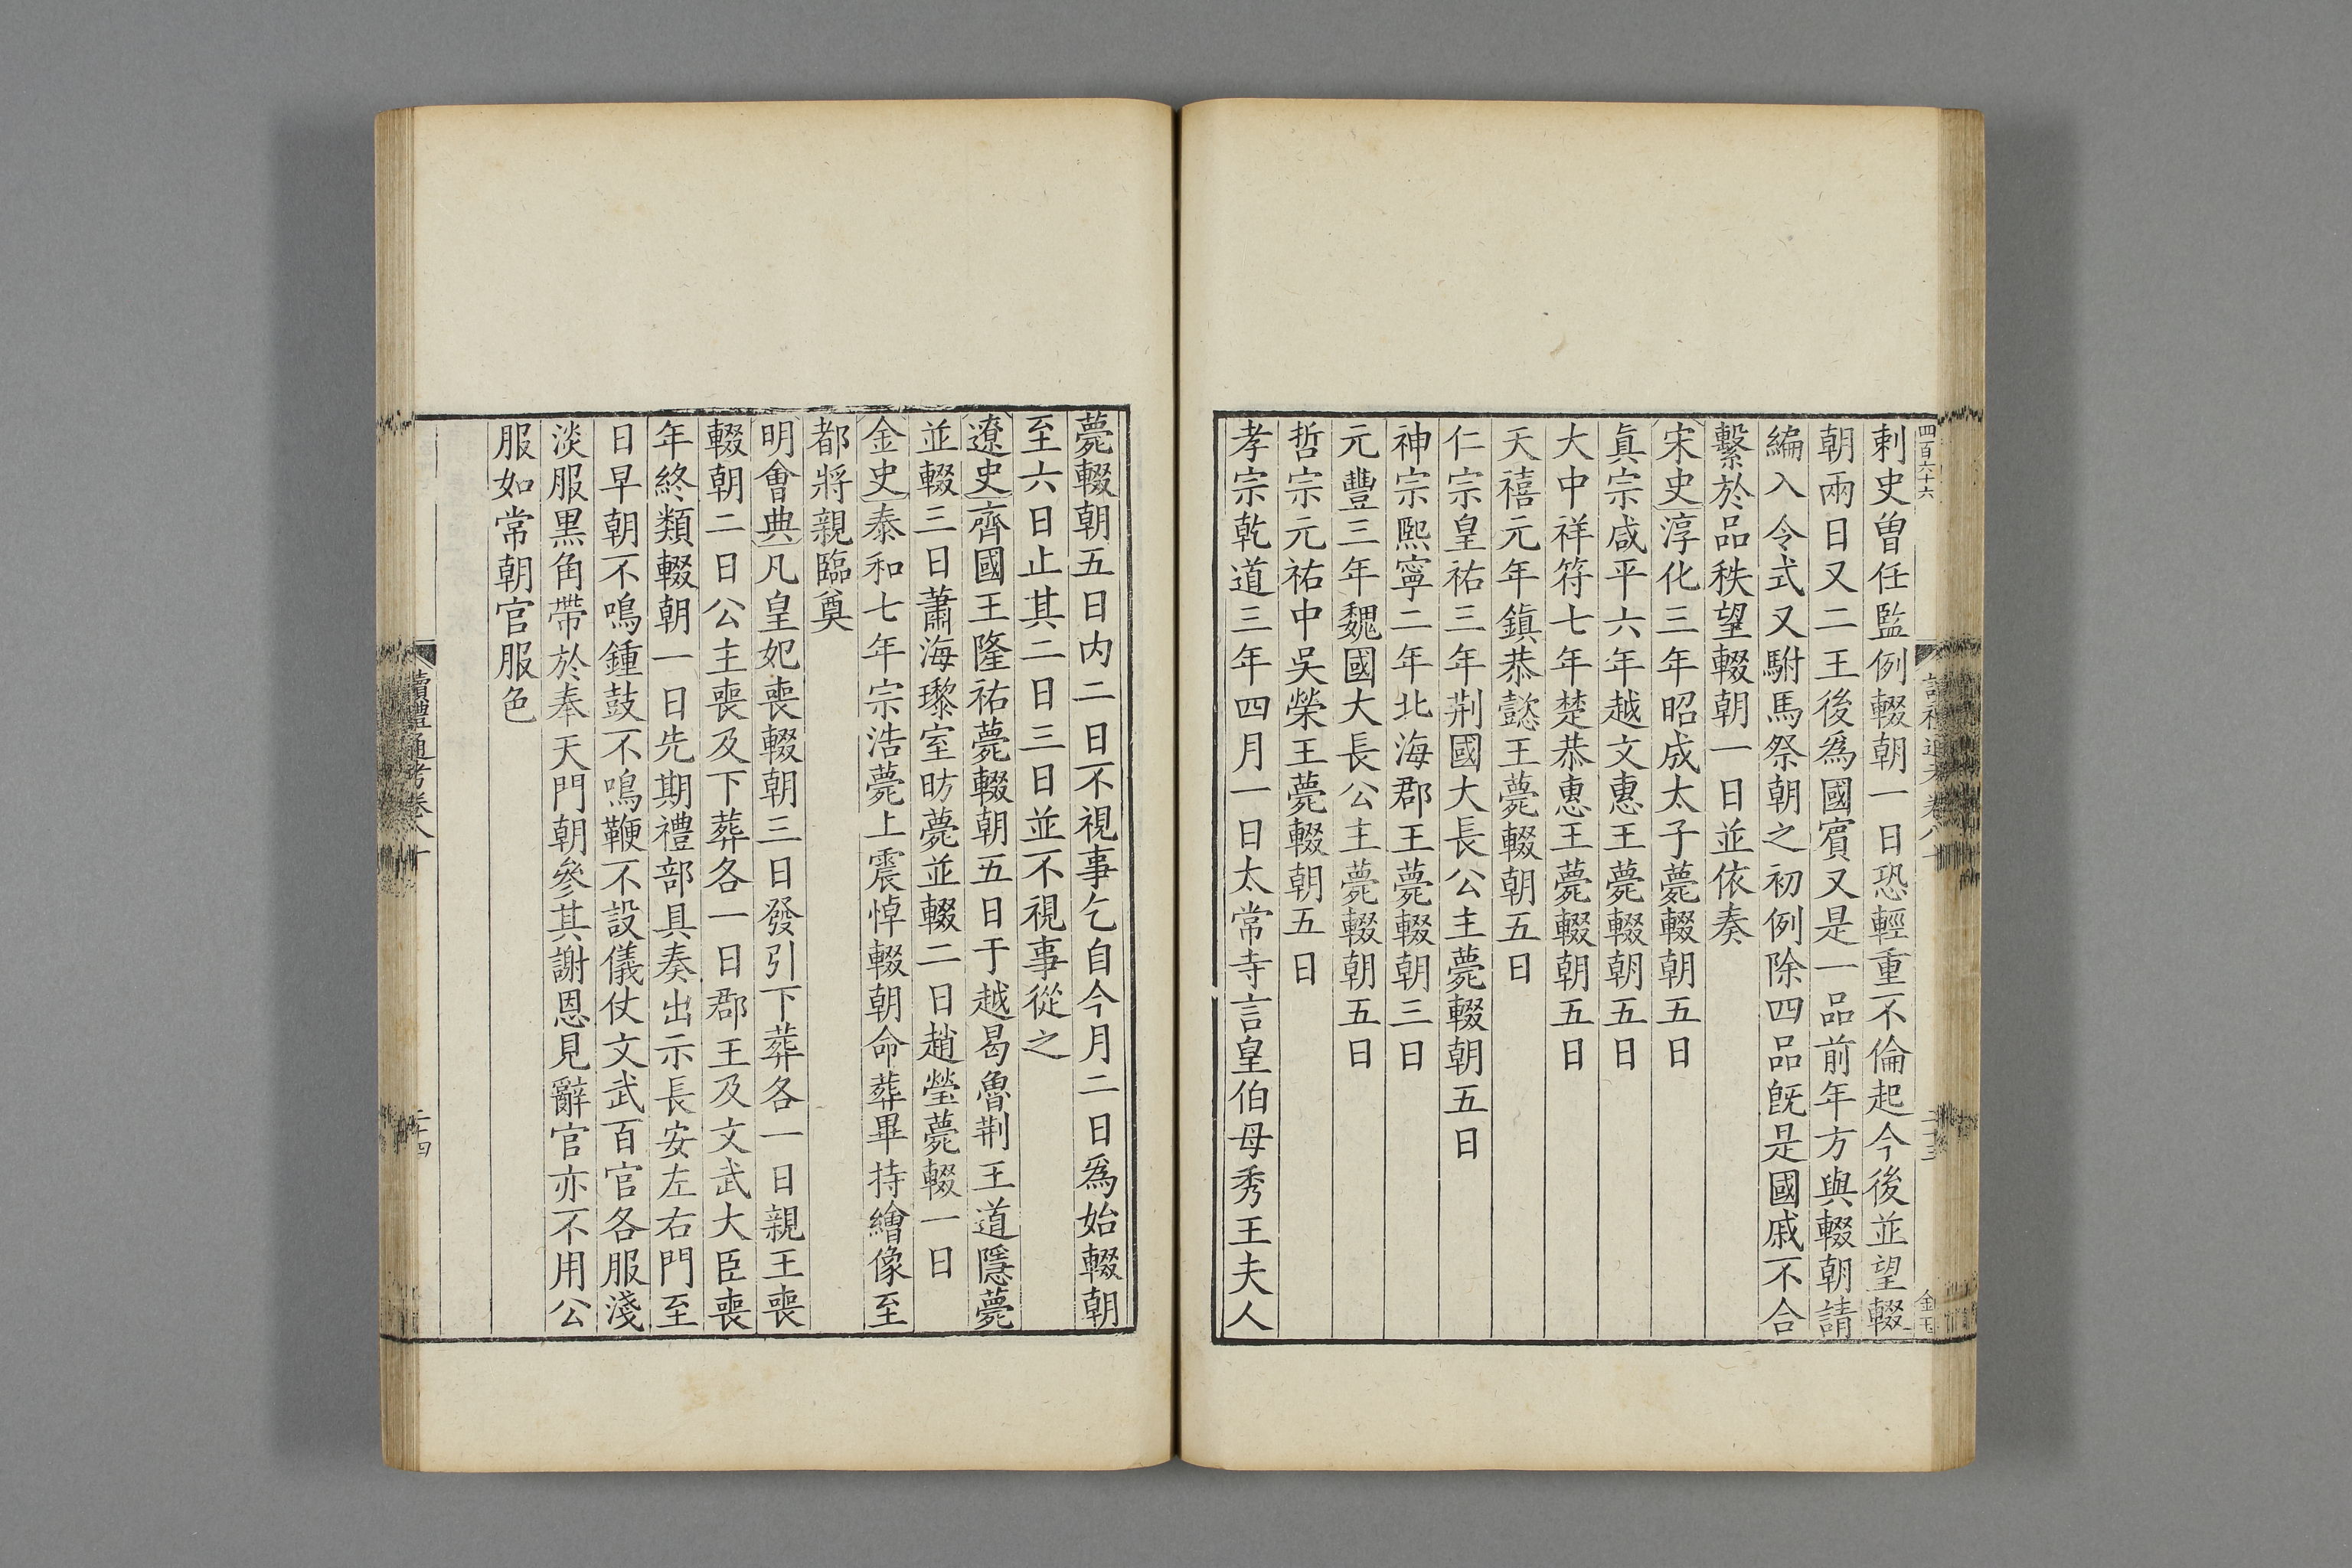 四百六十六
刺史曾任監例輟朝一日恐輕重不倫起今後並望輟
朝兩日又二王後爲國賓又是一品前年方與輟朝請
編入令式又駙馬祭朝之初例除四品旣是國戚不合
繫於品秩望輟朝一日並依奏
宋史淳化三年昭成太子薨輟朝五日
眞宗咸平六年越文惠王薨輟朝五日
大中祥符七年楚恭惠王薨輟朝五日
天禧元年鎮恭懿王薨輟朝五日
仁宗皇祐三年荆國大長公主薨輟朝五日
神宗熙寧二年北海郡王薨輟朝三日
元豐三年魏國大長公主薨輟朝五日
哲宗元祐中吳榮王薨輟朝五日
孝宗乾道三年四月一日太常寺言皇伯母秀王夫人
薨輟朝五日内二日不視事乞自今月二日爲始輟朝
至六日止其二日三日並不視事從之
遼史齊國王隆祐薨輟朝五日于越曷魯荆王道隱薨
並輟三日蕭海瓈室昉薨並輟二日趙瑩薨輟一日
金史泰和七年宗浩薨上震悼輟朝命葬畢持繪像至
都將親臨奠
明會典凡皇妃喪輟朝三日發引下葬各一日親王喪
輟朝二日公主喪及下葬各一日郡王及文武大臣喪
年終類輟朝一日先期禮部具奏出示長安左右門至
日早朝不鳴鍾鼓不鳴鞭不設儀仗文武百官各服淺
淡服黑角帶於奉天門朝參其謝恩見辭官亦不用公
服如常朝官服色
讀禮通考卷八十
二十四